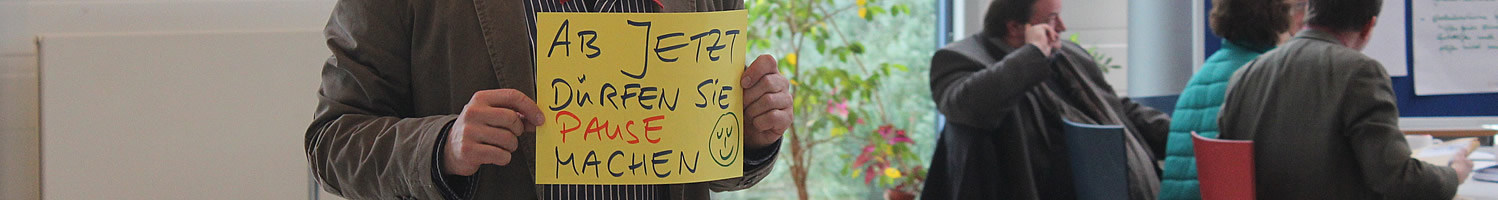 AB JETZT
DÜRFEN SiE
PAUSE
MACHEN